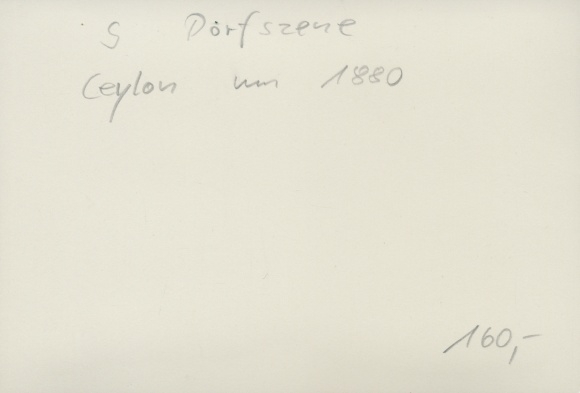 S Dorfszene
Ceylon um 1880
160,-